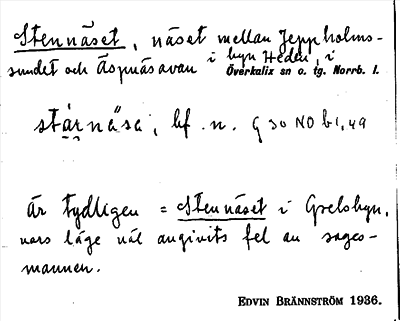 Stennäset, näset mellan Jeppholms-
sundet och Äspnäsavan i byn Heden, i
Överkalix sn o. tg. Norrb. l.
stárnäsa, bf. n. G 30 NO b 1, 49
Är tydligen = Stennäset i Grelsbyn,
vars läge väl angivits fel av sages-
mannen.
EDVIN BRÄNNSTRÖM 1936.